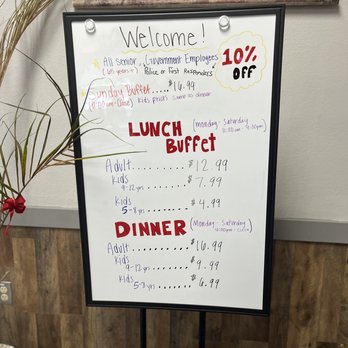 Welcome!
All Senior, Government Employees
(60 years +) Police or First Responders
10% OFF
Sunday Buffet.....$16.99
(11:00 am - Close) Kids prices same as dinner
LUNCH (Monday - Saturday
Buffet 11:00 am - 4:00pm)
Adult ........... $12.99
Kids
9-12 yrs .......... $7.99
Kids
5-8 yrs ......... $4.99
DINNER (Monday - Saturday
4:00pm - Close)
Adult ............ $16.99
Kids
9-12 yrs .......... $9.99
Kids
5-8 yrs ........ $6.99